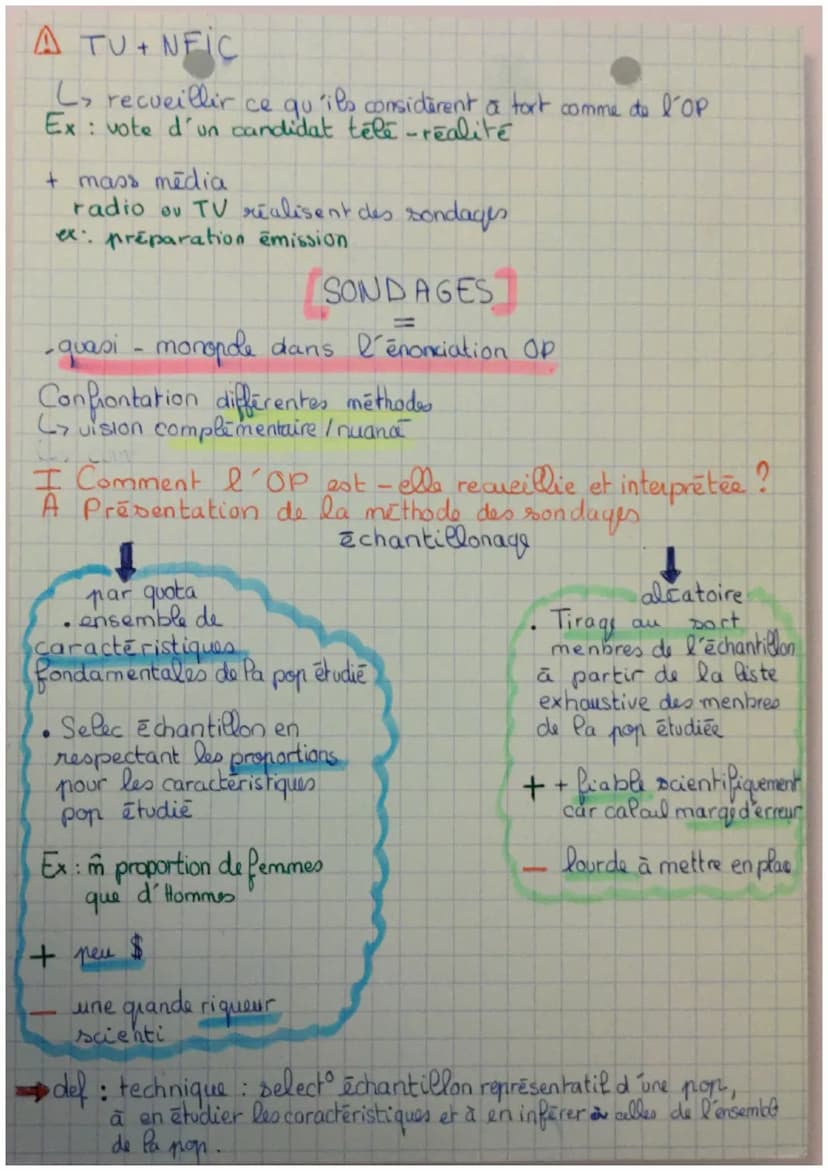 ⚠ TV + NFIC
↳ recueillir ce qu'ils considèrent à tort comme de l'OP
Ex : vote d'un candidat télé-réalité
+ mass média
radio ou TV réalisent des sondages
ex : préparation émission
[SONDAGES]
=
- quasi - monopole dans l'énonciation OP
Confrontation différentes méthodes
↳ vision complémentaire / nuancé
I Comment l'OP est-elle recueillie et interprétée ?
A Présentation de la méthode des sondages
échantillonage
par quota
• ensemble de
caractéristiques
fondamentales de la pop étudié
• Selec échantillon en
respectant les proportions
pour les caractéristiques
pop étudié
Ex : m̂ proportion de femmes
que d'Hommes
+ peu $
- une grande rigueur
scienti
aléatoire
• Tirage au sort
menbres de l'échantillon
à partir de la liste
exhaustive des menbres
de la pop étudiée
+ + fiable scientifiquement
car calcul marge d'erreur
- lourde à mettre en place
→ def : technique : select° échantillon représentatif d'une pop,
à en étudier les caractéristiques et à en inférer à celles de l'ensemble
de la pop.